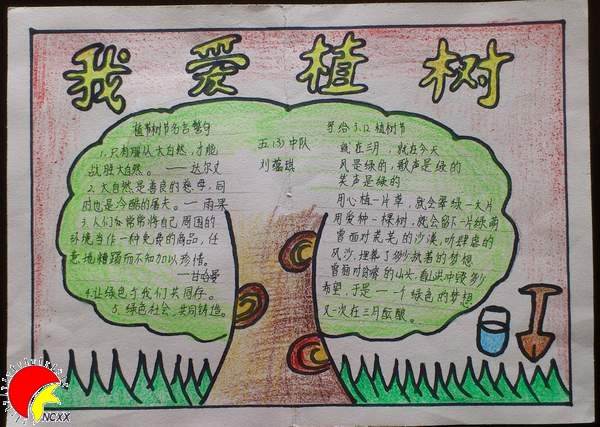 我爱植树
植树节名言警句
1.只有服从大自然,才能
战胜大自然。——达尔文
2.大自然是善良的慈母,同
时也是冷酷的屠夫。—雨果
3.人们常常将自己周围的
环境当作一种免费的商品,任
意地糟蹋而不知加以珍惜。
——甘哈曼
4.让绿色与我们共同存。
5.绿色社会,共同铸造。
五(3)中队
刘蕴琪
写给3.12植树节
就在三月,就在今天
风是绿的,歌声是绿的
笑声是绿的
用心植一片草,就会翠绿一大片
用爱种一棵树,就会留下一片绿荫
曾面对荒芜的沙漠,听肆虐的
风沙,埋葬了多少执着的梦想
曾面对贫瘠的山头,看山洪冲毁多少
希望,于是——一个绿色的梦想
又一次在三月酝酿。
NCXX